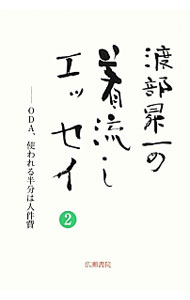 渡部昇一の
着流し
エッセイ
2
——ODA、使われる半分は人件費
広瀬書院